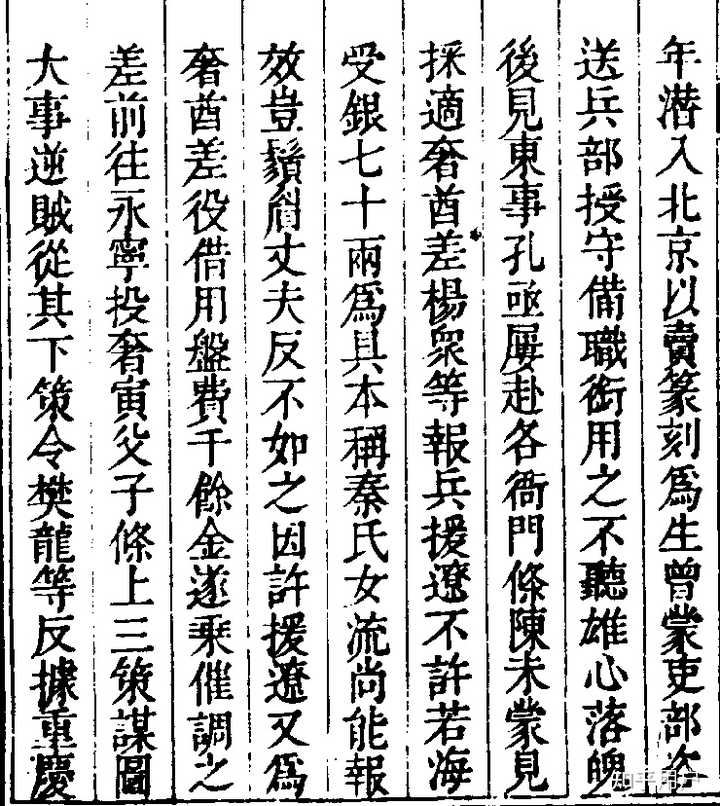 年潜入北京以賣篆刻爲生曾蒙吏部咨
送兵部授守備職銜用之不聽雄心落魄
後見東事孔亟屡赴各衙門條陳未蒙見
採適奢酋差楊衆等報兵援遼不許若海
受銀七十兩爲具本稱秦氏女流尚能報
效豈鬚眉丈夫反不如之因許援遼又爲
奢酋差役借用盤費千餘金遂乗催調之
差前往永寧投奢寅父子條上三策謀圖
大事逆賊從其下策令樊龍等反據重慶
知乎用户